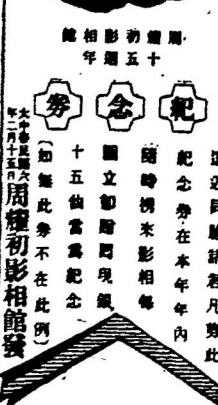 周耀初影相館
十五週年
紀念券
諸君凡剪此
紀念券在本年年內
隨時携來影相每
圓立卽贈囘現銀
十五仙當爲紀念
（如無此券不在此例）
大中華民國六
年二月十五日
周耀初影相館發